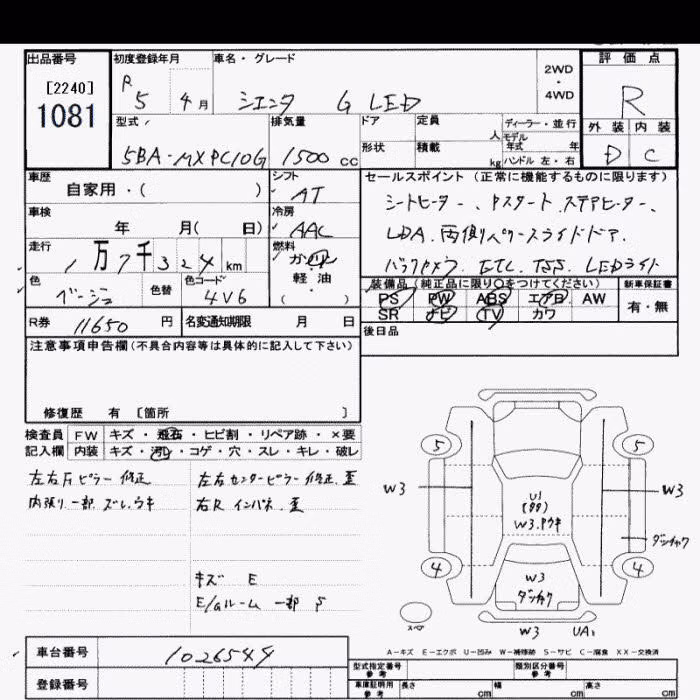 出品番号 初度登録年月 車名・グレード 2WD・4WD 評価点
[2240] R 5 4月 シエンタ G LED R
1081 型式 排気量 ドア 定員 人 ディーラー・並行 外装 内装
5BA-MXPC10G 1500cc 形状 積載 kg モデル年式 年 ハンドル 左・右 D C
車歴 シフト セールスポイント(正常に機能するものに限ります)
自家用・( ) AT シートヒーター、
車検 冷房 ステアヒーター、
年 月( 日) AAC LDA. 両側パワースライドドア.
走行 燃料 バックカメラ. ETC. LEDライト
1万7千324km ガソリン
色 色替 色コード 軽油 装備品(純正品に限り○をつけてください) 新車保証書
ベージュ 4V6 ( ・ ) PS PW ABS エアB AW 有・無
R券 11650円 名変通知期限 月 日 SR ナビ TV カワ
注意事項申告欄(不具合内容等は具体的に記入して下さい) 後日品
修復歴 有 [箇所 ]
検査員 FW キズ・飛石・ヒビ割・リペア跡・×要
記入欄 内装 キズ・汚レ・コゲ・穴・スレ・キレ・破レ
左右Fピラー 修正 左右センターピラー 修正、歪
内張り一部 ズレ、ウキ 右R インパネ、歪
キズ E
E/Gルーム 一部 S
5 5
W3 W3
U1
W3.
ダッチャク
4 4
W3
ダッチャク
スペア W3 UA1
A-キズ E-エクボ U-凹み W-補修跡 S-サビ C-腐食 XX-交換済
車台番号 1026549
登録番号
型式指定番号 参考 類別区分番号 参考
車庫証明用 参考 長さ cm 幅 cm 高さ cm